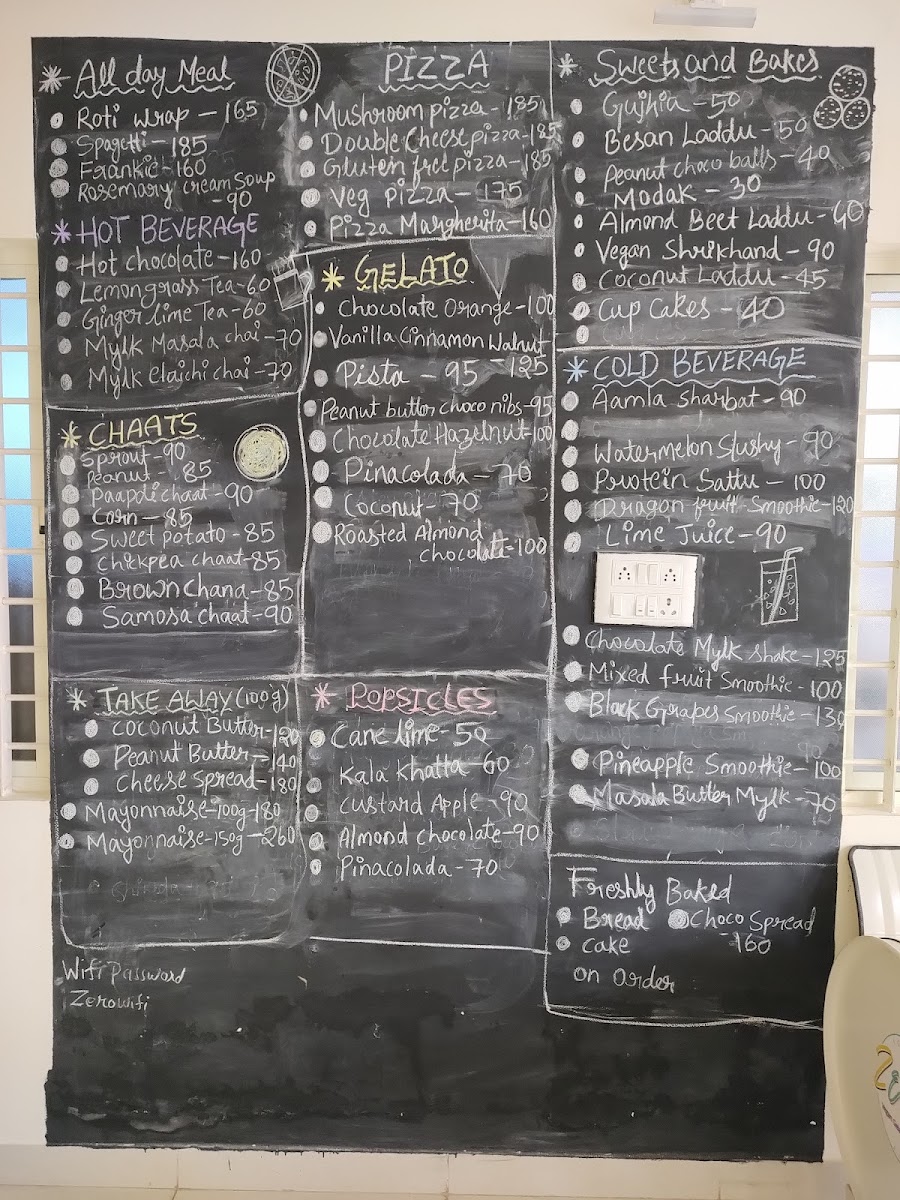 All day Meal
Roti wrap - 165
Spagetti - 185
Frankie - 160
Rosemary cream Soup
- 90
HOT BEVERAGE
Hot chocolate - 160
Lemongrass Tea - 60
Ginger lime Tea - 60
Mylk Masala chai - 70
Mylk Elaichi chai - 70
CHAATS
Sprout - 90
Peanut - 85
Paapdi chaat - 90
Corn - 85
Sweet potato - 85
Chickpea chaat - 85
Brown Chana - 85
Samosa chaat - 90
TAKE AWAY (100g)
Coconut Butter - 120
Peanut Butter - 140
Cheese Spread - 180
Mayonnaise - 100g - 180
Mayonnaise - 150g - 260
Wifi Password
Zerowifi
PIZZA
Mushroom pizza - 185
Double Cheese pizza - 185
Gluten free pizza - 185
Veg pizza - 175
Pizza Margherita - 160
GELATO
Chocolate Orange - 100
Vanilla Cinnamon Walnut
125
Pista - 95
Peanut butter choco nibs - 95
Chocolate Hazelnut - 100
Pinacolada - 70
Coconut - 70
Roasted Almond
chocolate - 100
POPSICLES
Cane lime - 50
Kala Khatta - 60
Custard Apple - 90
Almond chocolate - 90
Pinacolada - 70
Sweets and Bakes
Gujhia - 50
Besan Laddu - 50
Peanut choco balls - 40
Modak - 30
Almond Beet Laddu - 40
Vegan Shrikhand - 90
Coconut Laddu - 45
Cup Cakes - 40
COLD BEVERAGE
Aamla Sharbat - 90
Watermelon Slushy - 90
Protein Sattu - 100
Dragon fruit Smoothie - 120
Lime Juice - 90
Chocolate Mylk Shake - 125
Mixed fruit Smoothie - 100
Black Grapes Smoothie - 130
Pineapple Smoothie - 100
Masala Butter Mylk - 70
Freshly Baked
Bread Choco Spread
cake - 160
on order